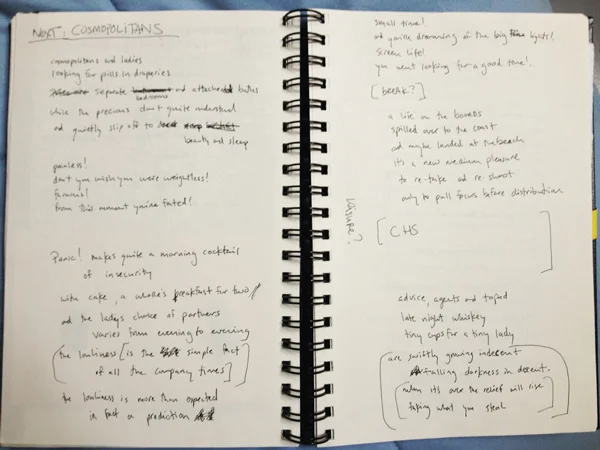 NEXT: COSMOPOLITANS
cosmopolitans and ladies
looking for pills in draperies
separate bedrooms and attached baths
while the precious don't quite understand
ad quietly slip off to
beauty and sleep
painless!
don't you wish you were weightless!
famous!
from this moment you're fated!
Panic! makes quite a morning cocktail
of insecurity
with cake, a whore's breakfast for two
and the lady's choice of partners
varies from evening to evening
the lonliness [is the simple fact
of all the company times]
the lonliness is more than expected
in fact a production
small time!
ad you're dreaming of the big lights!
screen life!
you went looking for a good time!
[break?]
a life on the boards
spilled over to the coast
ad maybe landed at the beach
it's a new medium pleasure
to re-take ad re-shoot
only to pull focus before distribution
leisure?
[CHS
]
advice, agents and
late night whiskey
tiny cups for a tiny lady
are swiftly growing indecent
falling darkness in descent.
when it's over the relief will rise
taking what you steal